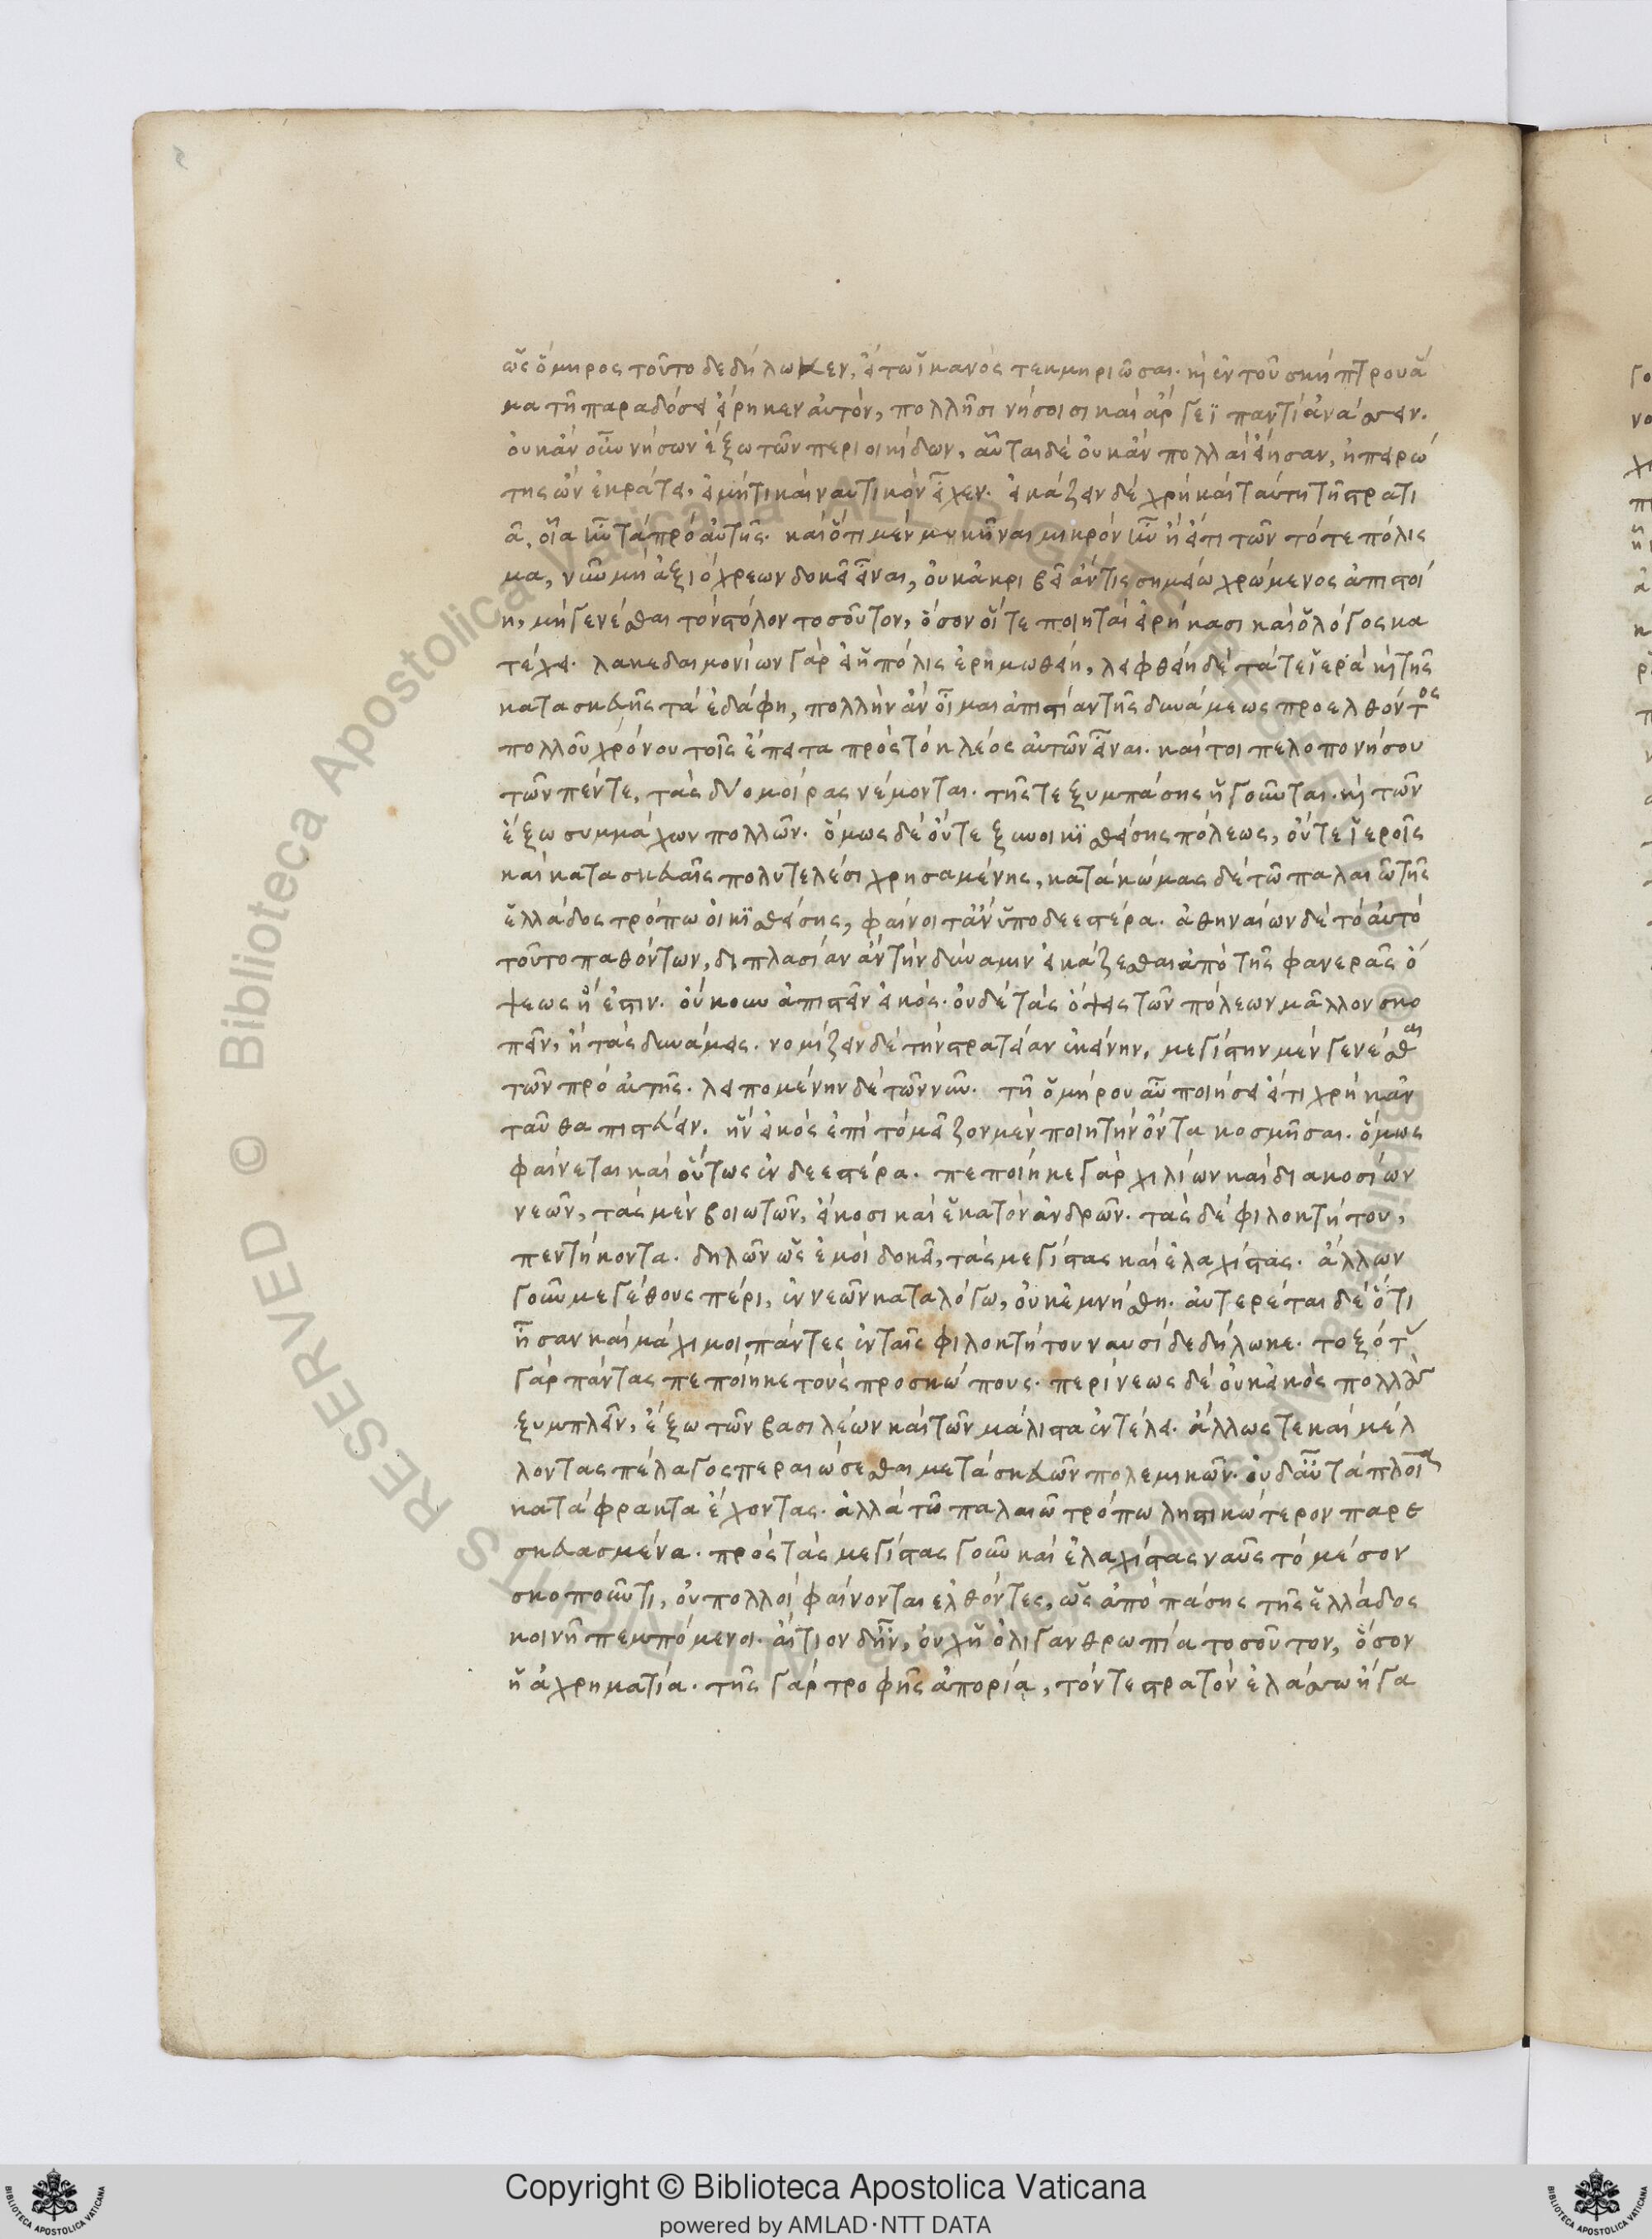 ὡς ὅμηρος τοῦτο δεδήλωκεν, εἴ τω ἱκανὸς τεκμηριῶσαι. καὶ ἐν τοῦ σκήπτρου ἅ
μα τῇ παραδόσει εἴρηκεν αὐτὸν, πολλῇσι νήσοισι καὶ ἄργεϊ παντὶ ἀνάσσειν.
οὐκ ἂν οὖν νήσων ἔξω τῶν περιοικίδων, αὗται δὲ οὐκ ἂν πολλαὶ εἴησαν, ἠπειρώ
της ὢν ἐκράτει, εἰ μήτι καὶ ναυτικὸν εἶχεν. εἰκάζειν δὲ χρὴ καὶ ταύτη τῇ στρατι
ᾷ, οἷα ἦν τὰ πρὸ αὐτῆς. καὶ ὅτι μὲν μυκῆναι μικρὸν ἦν ἢ εἴ τι τῶν τότε πόλις
μα, νῦν μὴ ἀξιόχρεων δοκεῖ εἶναι, οὐκ ἀκριβεῖ ἄν τις σημείω χρώμενος ἀπιστοί
η, μὴ γενέσθαι τὸν στόλον τοσοῦτον, ὅσον οἵ τε ποιηταὶ εἰρήκασι καὶ ὁ λόγος κα
τέχει. λακεδαιμονίων γὰρ εἰ ἡ πόλις ἐρημωθείη, λειφθείη δὲ τά τε ἱερὰ καὶ τῆς
κατασκευῆς τὰ ἐδάφη, πολλὴν ἂν οἶμαι ἀπιστίαν τῆς δυνάμεως προελθόντος
πολλοῦ χρόνου τοῖς ἔπειτα πρὸς τὸ κλέος αὐτῶν εἶναι. καί τοι πελοπονήσου
τῶν πέντε, τὰς δύο μοίρας νέμονται. τῆς τε ξυμπάσης ἡγοῦνται. καὶ τῶν
ἔξω συμμάχων πολλῶν. ὅμως δὲ οὔτε ξυνοικισθείσης πόλεως, οὔτε ἱεροῖς
καὶ κατασκευαῖς πολυτελέσι χρησαμένης, κατὰ κώμας δὲ τῶ παλαιῶ τῆς
ἑλλάδος τρόπω οἰκισθείσης, φαίνοιτ ἂν ὑποδεεστέρα. ἀθηναίων δὲ τὸ αὐτὸ
τοῦτο παθόντων, διπλασίαν ἂν τὴν δύναμιν εἰκάζεσθαι ἀπὸ τῆς φανερᾶς ὄ
ψεως ἢ ἔστιν. οὔκουν ἀπιστεῖν εἰκός. οὐδὲ τὰς ὄψεις τῶν πόλεων μᾶλλον σκο
πεῖν, ἢ τὰς δυνάμεις. νομίζειν δὲ τὴν στρατείαν ἐκείνην, μεγίστην μὲν γενέσθαι
τῶν πρὸ αὐτῆς. λειπομένην δὲ τῶν νῦν. τῇ ὁμήρου αὖ ποιήσει εἴ τι χρὴ κἀν
ταῦθα πιστεύειν. ἣν εἰκὸς ἐπὶ τὸ μεῖζον μὲν ποιητὴν ὄντα κοσμῆσαι. ὅμως
φαίνεται καὶ οὕτως ἐνδεεστέρα. πεποίηκε γὰρ χιλίων καὶ διακοσίων
νεῶν, τὰς μὲν βοιωτῶν, εἴκοσι καὶ ἑκατὸν ἀνδρῶν. τὰς δὲ φιλοκτήτου,
πεντήκοντα. δηλῶν ὡς ἐμοὶ δοκεῖ, τὰς μεγίστας καὶ ἐλαχίστας. ἄλλων
γοῦν μεγέθους πέρι, ἐν νεῶν καταλόγω, οὐκ ἐμνήσθη. αὐτερέται δὲ ὅτι
ἦσαν καὶ μάχιμοι πάντες ἐν ταῖς φιλοκτήτου ναυσὶ δεδήλωκε. τοξότ
γὰρ πάντας πεποίηκε τοὺς προσκώπους. περίνεως δὲ οὐκ εἰκὸς πολλοὺς
ξυμπλεῖν, ἔξω τῶν βασιλέων καὶ τῶν μάλιστα ἐν τέλει. ἄλλως τε καὶ μέλ
λοντας πέλαγος περαιώσεσθαι μετὰ σκευῶν πολεμικῶν. οὐδ αὖ τὰ πλοῖα
κατάφρακτα ἔχοντας. ἀλλὰ τῶ παλαιῶ τρόπω ληστικώτερον παρε
σκευασμένα. πρὸς τὰς μεγίστας γοῦν καὶ ἐλαχίστας ναῦς τὸ μέσον
σκοποῦντι, οὐ πολλοὶ φαίνονται ἐλθόντες, ὡς ἀπὸ πάσης τῆς ἑλλάδος
κοινῇ πεμπόμενοι. αἴτιον δ ἦν, οὐχ ἡ ὀλιγανθρωπία τοσοῦτον, ὅσον
ἡ ἀχρηματία. τῆς γὰρ τροφῆς ἀπορία, τόν τε στρατὸν ἐλάσσω ἤγα
Copyright © Biblioteca Apostolica Vaticana
powered by AMLAD·NTT DATA